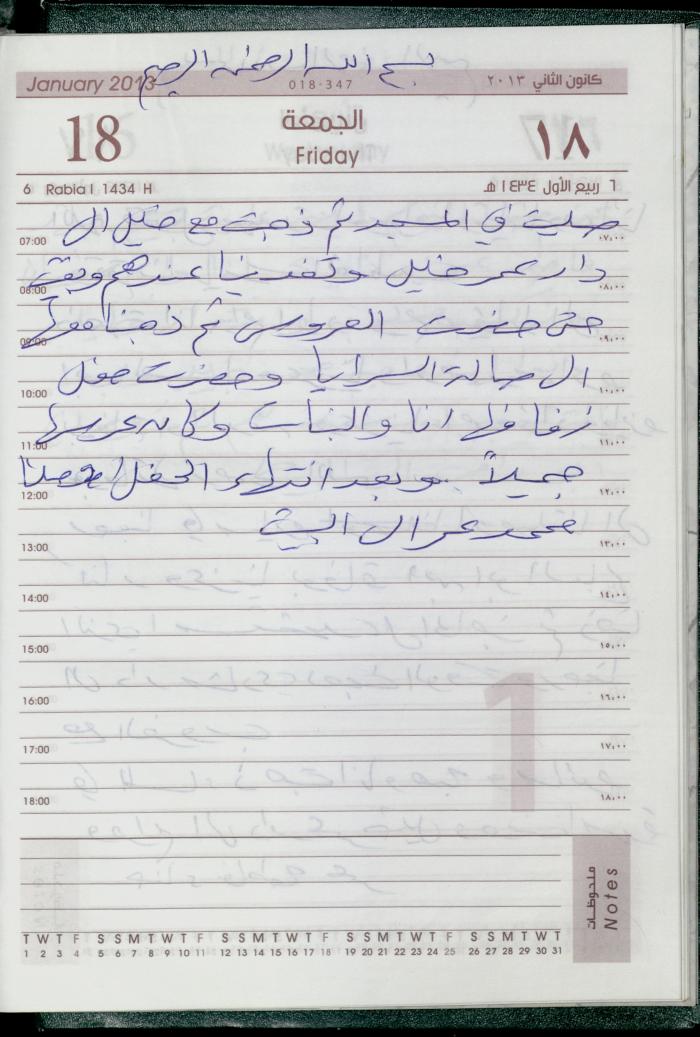 بسم الله الرحمن الرحيم
January 2013 018-347 كانون الثاني ٢٠١٣
18 الجمعة ١٨
Friday
6 Rabia I 1434 H ٦ ربيع الأول ١٤٣٤ هـ
صليت في المسجد ثم ذهبت مع خليل الى
07:00 ٠٧,٠٠
دار عمر خليل وتغدينا عندهم وبقيت
08:00 ٠٨,٠٠
حتى حضرت العروس ثم ذهبنا
09:00 ٠٩,٠٠
الى صالة السرايا وحضرت حفل
10:00 ١٠,٠٠
زفافها انا والبنات وكان عرسها
11:00 ١١,٠٠
جميلاً وبعد انتهاء الحفل
12:00 ١٢,٠٠
محمد عمر الى البيت
13:00 ١٣,٠٠
14:00 ١٤,٠٠
15:00 ١٥,٠٠
16:00 ١٦,٠٠
17:00 ١٧,٠٠
18:00 ١٨,٠٠
1
ملحوظات
Notes
T W T F S S M T W T F S S M T W T F S S M T W T F S S M T W T
1 2 3 4 5 6 7 8 9 10 11 12 13 14 15 16 17 18 19 20 21 22 23 24 25 26 27 28 29 30 31